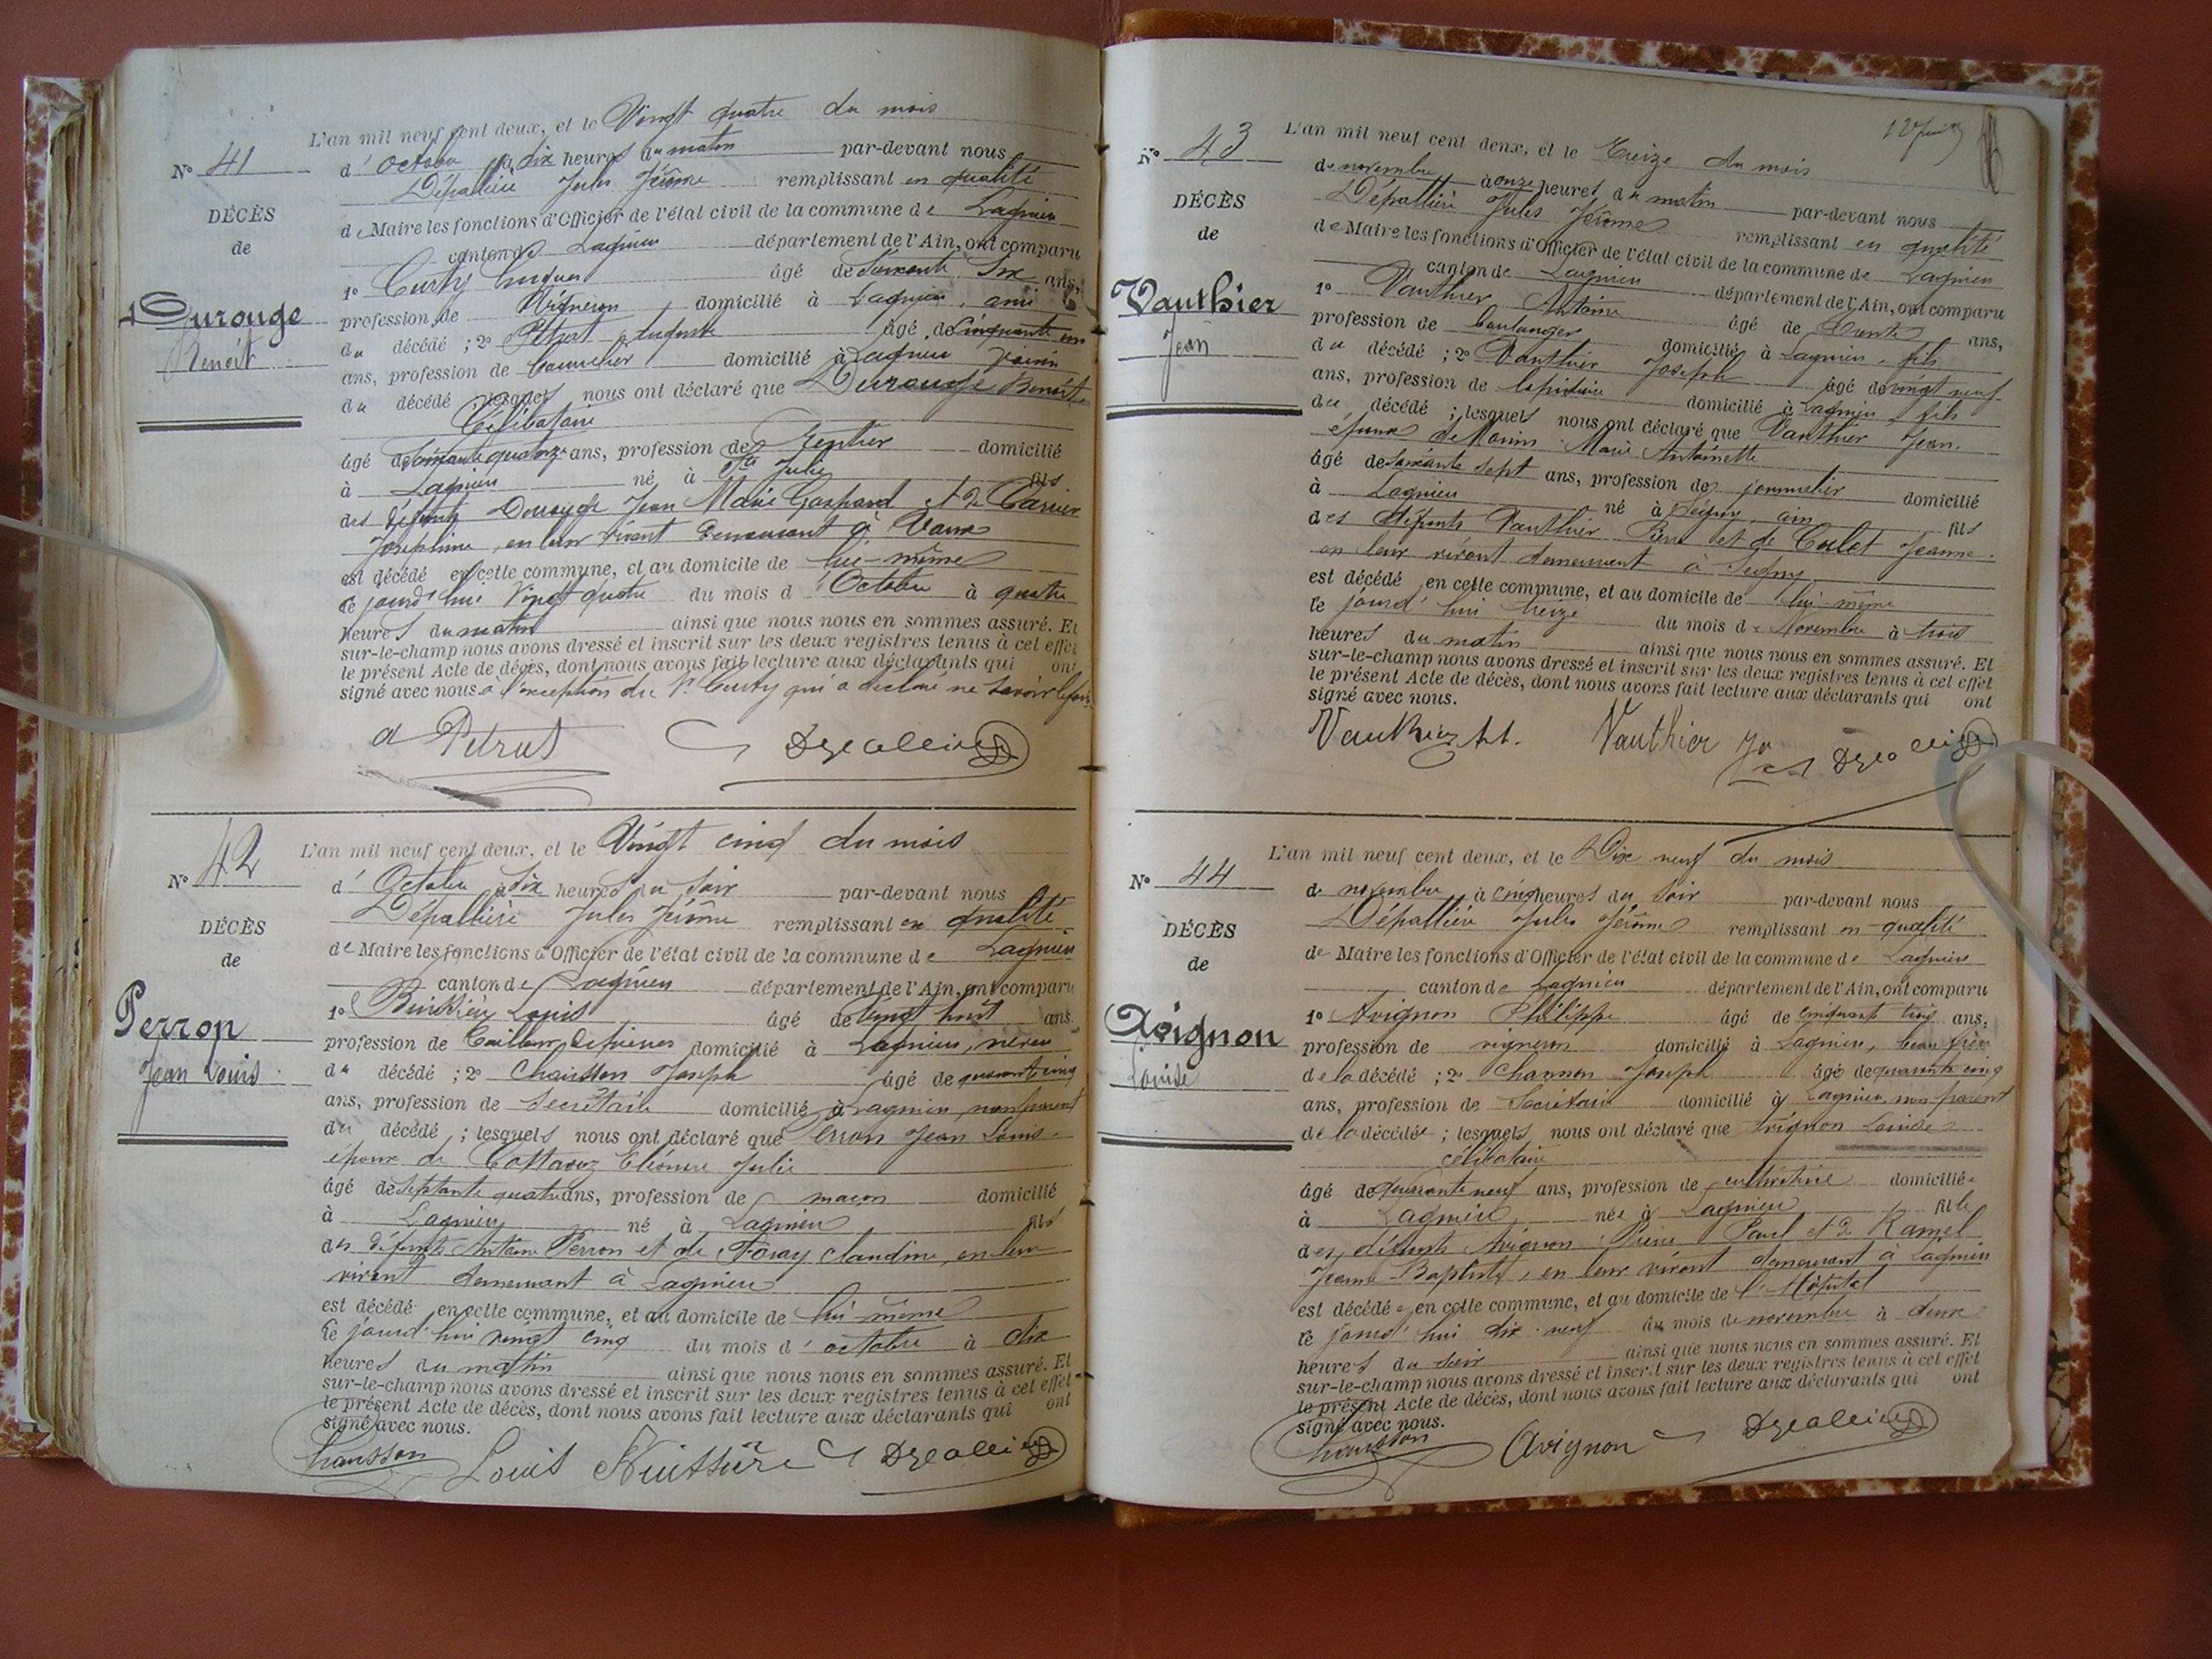 L'an mil neuf cent deux, et le Vingt quatre du mois
N° 41
d'octobre à dix heures du matin par-devant nous
Dépallière Jules Jérôme remplissant en qualité
DÉCÈS
de Maire les fonctions d'Officier de l'état civil de la commune de Lagnieu
de
canton de Lagnieu département de l'Ain, ont comparu
1° Curty âgé de Soixante Six ans,
Durouge
profession de Vigneron, domicilié à Lagnieu, ami
Benoît
du décédé ; 2° Pétrat âgé de Cinquante un
ans, profession de domicilié à Lagnieu voisin
du décédé ; lesquels nous ont déclaré que Durouge Benoît
Célibataire
âgé de Soixante quatorze ans, profession de Rentier domicilié
à Lagnieu né à Ste Julie fils
des défunts Durouge Jean Marie Gaspard et de Carrier
Joséphine, en leur vivant demeurant à Vaux
est décédé en cette commune, et au domicile de lui-même
le jourd'hui Vingt quatre du mois d'Octobre à quatre
heures du matin ainsi que nous nous en sommes assuré. Et
sur-le-champ nous avons dressé et inscrit sur les deux registres tenus à cet effet
le présent Acte de décès, dont nous avons fait lecture aux déclarants qui ont
signé avec nous à l'exception du Sr Curty qui a déclaré ne savoir le faire
L'an mil neuf cent deux, et le Vingt cinq du mois
N° 42
d'Octobre à Six heures du Soir par-devant nous
Dépallière Jules Jérôme remplissant en qualité
DÉCÈS
de Maire les fonctions d'Officier de l'état civil de la commune de Lagnieu
de
canton de Lagnieu département de l'Ain, ont comparu
1° Louis âgé de vingt huit ans
Perron
profession de Tailleur de pierres domicilié à Lagnieu, neveu
Jean Louis
du décédé ; 2° Chausson Joseph âgé de quarante cinq
ans, profession de Secrétaire domicilié à Lagnieu, non parent
du décédé ; lesquels nous ont déclaré que Perron Jean Louis
époux de Eléonore Julie
âgé de Septante quatre ans, profession de maçon domicilié
à Lagnieu né à Lagnieu fils
des défunts Antoine Perron et de Foray Claudine, en leur
vivant demeurant à Lagnieu
est décédé en cette commune, et au domicile de lui-même
le jourd'hui vingt cinq du mois d'octobre à dix
heures du matin ainsi que nous nous en sommes assuré. Et
sur-le-champ nous avons dressé et inscrit sur les deux registres tenus à cet effet
le présent Acte de décès, dont nous avons fait lecture aux déclarants qui ont
signé avec nous.
Chausson Louis
L'an mil neuf cent deux, et le Treize du mois
N° 43
de novembre à onze heures du matin par-devant nous
Dépallière Jules Jérôme remplissant en qualité
DÉCÈS
de Maire les fonctions d'Officier de l'état civil de la commune de Lagnieu
de
canton de Lagnieu département de l'Ain, ont comparu
Vauthier
1° Vauthier Antoine âgé de trente ans,
Jean
profession de boulanger domicilié à Lagnieu, fils
du décédé ; 2° Vauthier Joseph âgé de vingt neuf
ans, profession de lapidaire domicilié à Lagnieu, fils
du décédé ; lesquels nous ont déclaré que Vauthier Jean.
époux de Marie Antoinette
âgé de Soixante Sept ans, profession de domicilié
à Lagnieu né à Ségny, ain fils
des défunts Vauthier Pierre et de Jeanne.
en leur vivant demeurant à Segny
est décédé en cette commune, et au domicile de lui-même
le jourd'hui treize du mois de Novembre à trois
heures du matin ainsi que nous nous en sommes assuré. Et
sur-le-champ nous avons dressé et inscrit sur les deux registres tenus à cet effet
le présent Acte de décès, dont nous avons fait lecture aux déclarants qui ont
signé avec nous.
Vauthier At. Vauthier Jh
L'an mil neuf cent deux, et le Dix neuf du mois
N° 44
de novembre à cinq heures du Soir par-devant nous
Dépallière Jules Jérôme remplissant en qualité
DÉCÈS
de Maire les fonctions d'Officier de l'état civil de la commune de Lagnieu
de
canton de Lagnieu département de l'Ain, ont comparu
1° Avignon Philippe âgé de cinquante trois ans,
Avignon
profession de vigneron domicilié à Lagnieu, beau frère
Louise
de la décédé ; 2° Chausson Joseph âgé de quarante cinq
ans, profession de Secrétaire domicilié à Lagnieu, non parent
de la décédée ; lesquels nous ont déclaré que Avignon Louise
célibataire
âgé de quarante neuf ans, profession de cultivatrice domiciliée
à Lagnieu née à Lagnieu fille
des défunts Avignon Paul et de Ramel
Jeanne Baptiste, en leur vivant demeurant à Lagnieu
est décédée en cette commune, et au domicile de l'Hôpital
le jourd'hui dix-neuf du mois de novembre à deux
heures du soir ainsi que nous nous en sommes assuré. Et
sur-le-champ nous avons dressé et inscrit sur les deux registres tenus à cet effet
le présent Acte de décès, dont nous avons fait lecture aux déclarants qui ont
signé avec nous.
Chausson Avignon